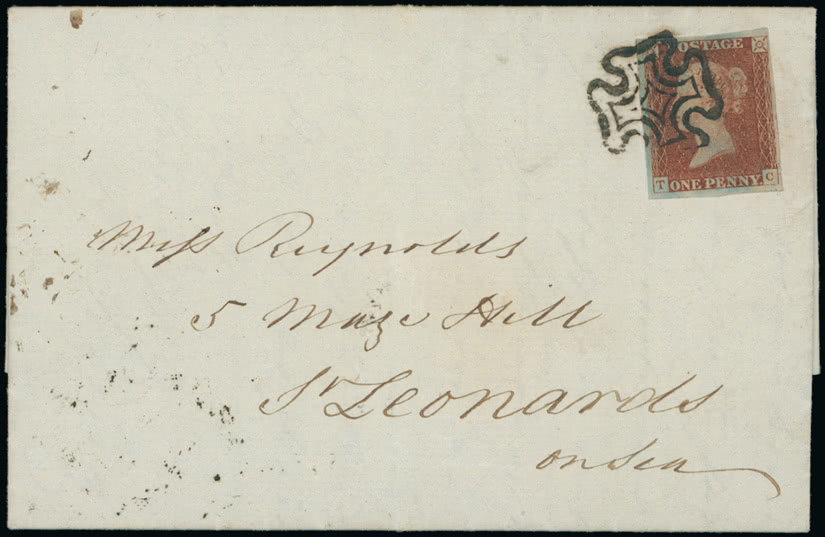 POSTAGE
T ONE PENNY C
Miss Reynolds
5 Maze Hill
St Leonards
on Sea